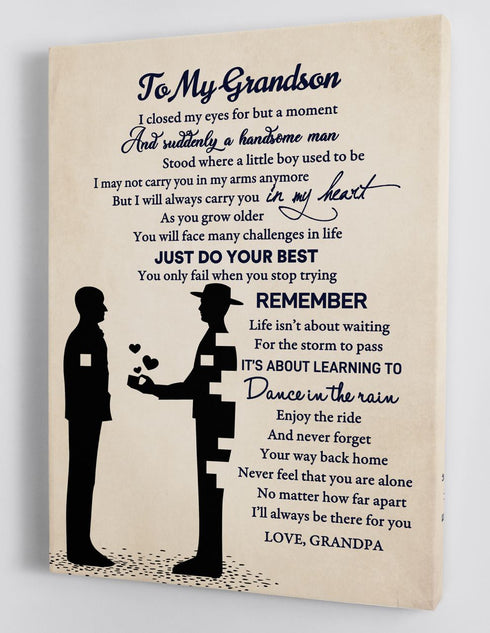 To My Grandson
I closed my eyes for but a moment
And suddenly a handsome man
Stood where a little boy used to be
I may not carry you in my arms anymore
But I will always carry you in my heart
As you grow older
You will face many challenges in life
JUST DO YOUR BEST
You only fail when you stop trying
REMEMBER
Life isn't about waiting
For the storm to pass
IT'S ABOUT LEARNING TO
Dance in the rain
Enjoy the ride
And never forget
Your way back home
Never feel that you are alone
No matter how far apart
I'll always be there for you
LOVE, GRANDPA